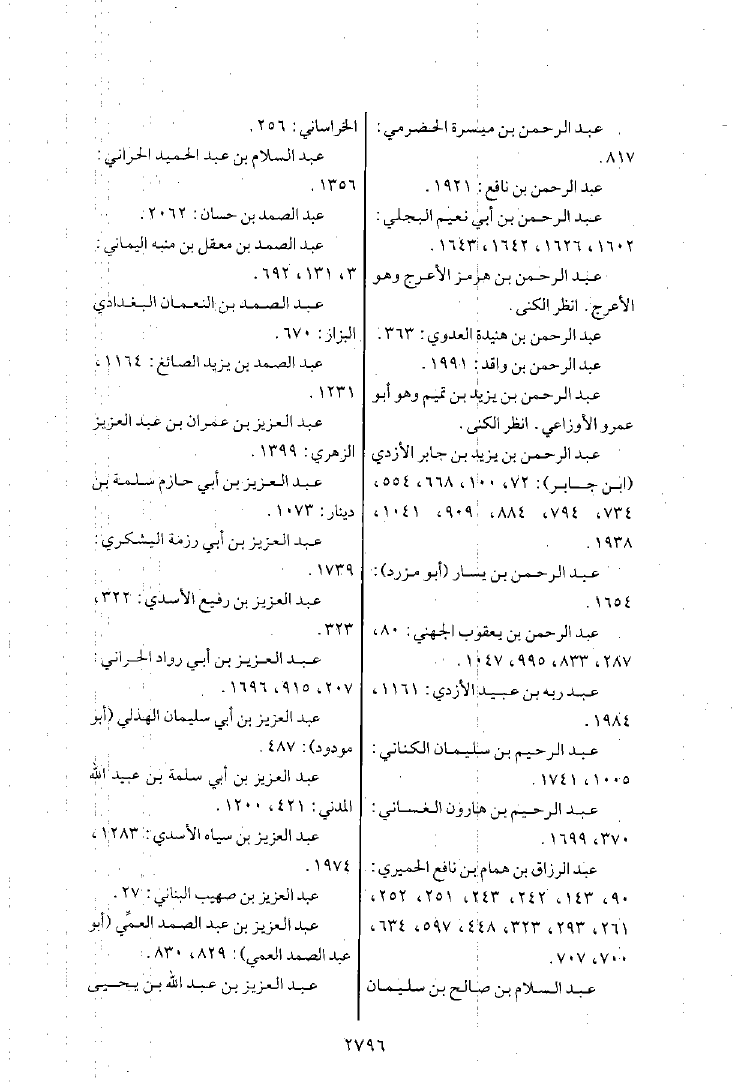 عبد الرحمن بن ميسرة الحضرمي:
٨١٧.
عبد الرحمن بن نافع: ١٩٢١.
عبد الرحمن بن أبي نعيم البجلي:
١٦٠٢، ١٦٢٦، ١٦٤٢، ١٦٤٣.
عبد الرحمن بن هرمز الأعرج وهو
الأعرج. انظر الكنى.
عبد الرحمن بن هنيدة العدوي: ٣٦٣.
عبد الرحمن بن واقد: ١٩٩١.
عبد الرحمن بن يزيد بن تميم وهو أبو
عمرو الأوزاعي. انظر الكنى.
عبد الرحمن بن يزيد بن جابر الأزدي
(ابن جابر): ٧٢، ١٠٠، ٦٦٨، ٥٥٤،
٧٣٤، ٧٩٤، ٨٨٤، ٩٠٩، ١٠٤١،
١٩٣٨.
عبد الرحمن بن يسار (أبو مزرد):
١٦٥٤.
عبد الرحمن بن يعقوب الجهني: ٨٠،
٢٨٧، ٨٣٣، ٩٩٥، ١٠٤٧.
عبد ربه بن عبيد الأزدي: ١١٦١،
١٩٨٤.
عبد الرحيم بن سليمان الكناني:
١٠٠٥، ١٧٤١.
عبد الرحيم بن هارون الغساني:
٣٧٠، ١٦٩٩.
عبد الرزاق بن همام بن نافع الحميري:
٩٠، ١٤٣، ٢٤٢، ٢٤٣، ٢٥١، ٢٥٢،
٢٦١، ٢٩٣، ٣٢٣، ٤٤٨، ٥٩٧، ٦٣٤،
٧٠٠، ٧٠٧.
عبد السلام بن صالح بن سليمان
الخراساني: ٢٥٦.
عبد السلام بن عبد الحميد الحراني:
١٣٥٦.
عبد الصمد بن حسان: ٢٠٦٢.
عبد الصمد بن معقل بن منبه اليماني:
٣، ١٣١، ٦٩٢.
عبد الصمد بن النعمان البغدادي
البزاز: ٦٧٠.
عبد الصمد بن يزيد الصائغ: ١١٦٤،
١٢٣١.
عبد العزيز بن عمران بن عبد العزيز
الزهري: ١٣٩٩.
عبد العزيز بن أبي حازم سلمة بن
دينار: ١٠٧٣.
عبد العزيز بن أبي رزمة اليشكري:
١٧٣٩.
عبد العزيز بن رفيع الأسدي: ٣٢٢،
٣٢٣.
عبد العزيز بن أبي رواد الحراني:
٢٠٧، ٩١٥، ١٦٩٦.
عبد العزيز بن أبي سليمان الهذلي (أبو
مودود): ٤٨٧.
عبد العزيز بن أبي سلمة بن عبيد الله
المدني: ٤٢١، ١٢٠٠.
عبد العزيز بن سياه الأسدي: ١٢٨٣،
١٩٧٤.
عبد العزيز بن صهيب البناني: ٢٧.
عبد العزيز بن عبد الصمد العمِّي (أبو
عبد الصمد العمي): ٨٢٩، ٨٣٠.
عبد العزيز بن عبد الله بن يحيى
٢٧٩٦